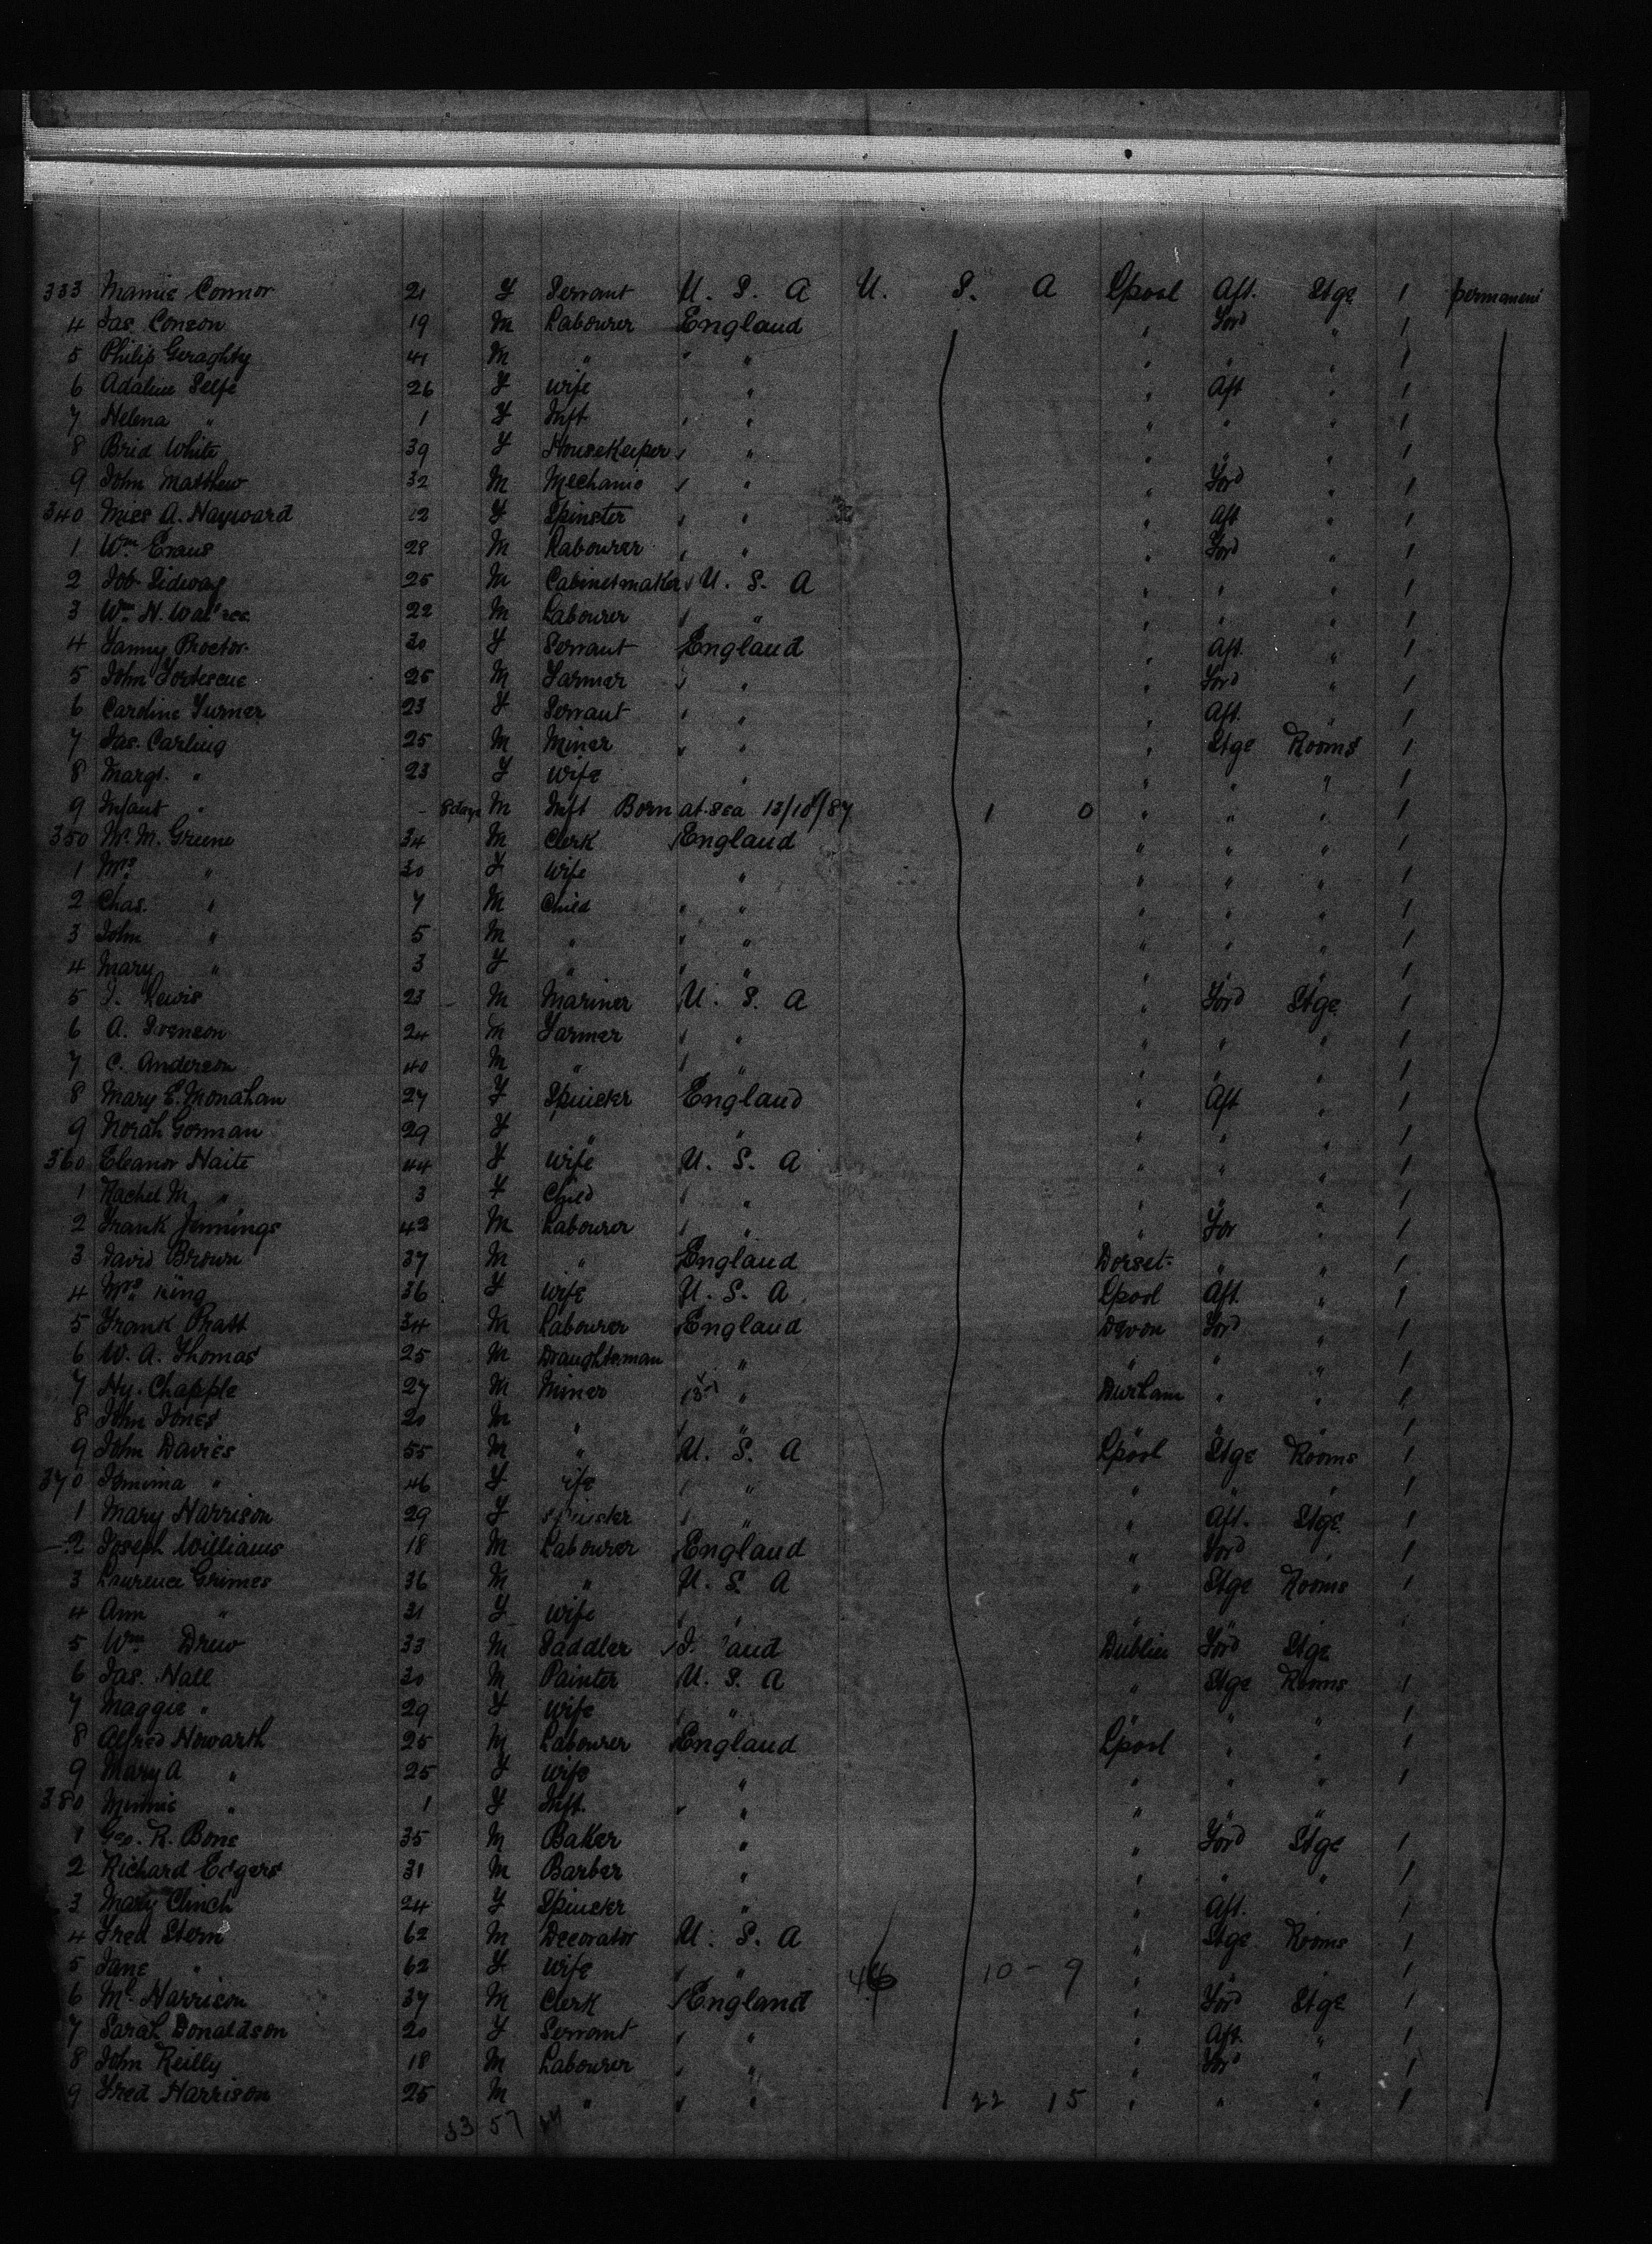 333 Mamie Connor 21 F Servant U. S. A U. S. A Lpool Aft. Stge 1 permanent
4 Jas. Conson 19 M Labourer England " Ford " 1
5 Philip Geraghty 41 M " " " " " 1
6 Adaline Selfe 26 F Wife " " Aft " 1
7 Helena " 1 F Inft " " " " 1
8 Brid White 39 F Housekeeper " " " " 1
9 John Matthew 32 M Mechanic " " Ford " 1
340 Miss A. Hayward F Spinster " " Aft " 1
1 Wm Evans 28 M Labourer " " Ford " 1
2 Job Sidway 25 M Cabinetmaker U. S. A " " " 1
3 Wm H. 22 M Labourer " " " " 1
4 Fanny Proctor 20 F Servant England " Aft. " 1
5 John Fortescue 25 M Farmer " " Ford " 1
6 Caroline Turner 23 F Servant " " Aft. " 1
7 Jas. Carling 25 M Miner " " Stge Rooms 1
8 Margt. " 23 F Wife " " " " 1
9 Infant " - 8 days M Inft Born at sea 13/10/87 1 0 " " " 1
350 Mr M. Greene 34 M Clerk England " " " 1
1 Mrs " 30 F Wife " " " " 1
2 Chas. " 7 M Child " " " " 1
3 John " 5 M " " " " " 1
4 Mary " 3 F " " " " " 1
5 J. Lewis 23 M Mariner U. S. A " Ford Stge 1
6 A. Svenson 24 M Farmer " " " " 1
7 C. Anderson 40 M " " " " " 1
8 Mary E. Monahan 27 F Spinster England " Aft " 1
9 Norah Gorman 29 F " " " " " 1
360 Eleanor Haite 44 F Wife U. S. A " " " 1
1 Rachel M. " 3 F Child " " " " 1
2 Frank Jennings 42 M Labourer " " For " 1
3 David Brown 37 M " England Dorset " " 1
4 Mrs King 36 F Wife U. S. A Lpool Aft. " 1
5 Frank Pratt 34 M Labourer England Devon Ford " 1
6 W. A. Thomas 25 M Draughtsman " " " " 1
7 Hy. Chapple 27 M Miner " Durham " " 1
8 John Jones 20 M " " " " " 1
9 John Davies 55 M " U. S. A Lpool Stge Rooms 1
370 Jemima " 46 F ife " " " " 1
1 Mary Harrison 29 F Spinster " " Aft. Stge 1
2 Joseph Williams 18 M Labourer England " Ford " 1
3 Laurence Grimes 36 M " U. S. A " Stge Rooms 1
4 Ann " 31 F Wife " " " "
5 Wm Drew 33 M Saddler Dublin Ford Stge
6 Jas. Hall 30 M Painter U. S. A " Stge Rooms 1
7 Maggie " 29 F Wife " " " " 1
8 Alfred Howarth 25 M Labourer England Lpool " " 1
9 Mary A " 25 F Wife " " " " 1
380 Minnie " 1 F Inft. " " " "
1 Geo. R. Bone 35 M Baker " " Ford Stge 1
2 Richard Edgers 31 M Barber " " " " 1
3 Mary Clinch 24 F Spinster " " Aft. " 1
4 Fred Stern 62 M Decorator U. S. A " Stge Rooms 1
5 Jane " 62 F Wife " 10 - 9 " " " 1
6 Mr. Harrison 37 M Clerk England " Ford Stge 1
7 Sarah Donaldson 20 F Servant " " Aft. " 1
8 John Reilly 18 M Labourer " " Ford " 1
9 Fred Harrison 25 M " " 22 15 " " " 1
33 57